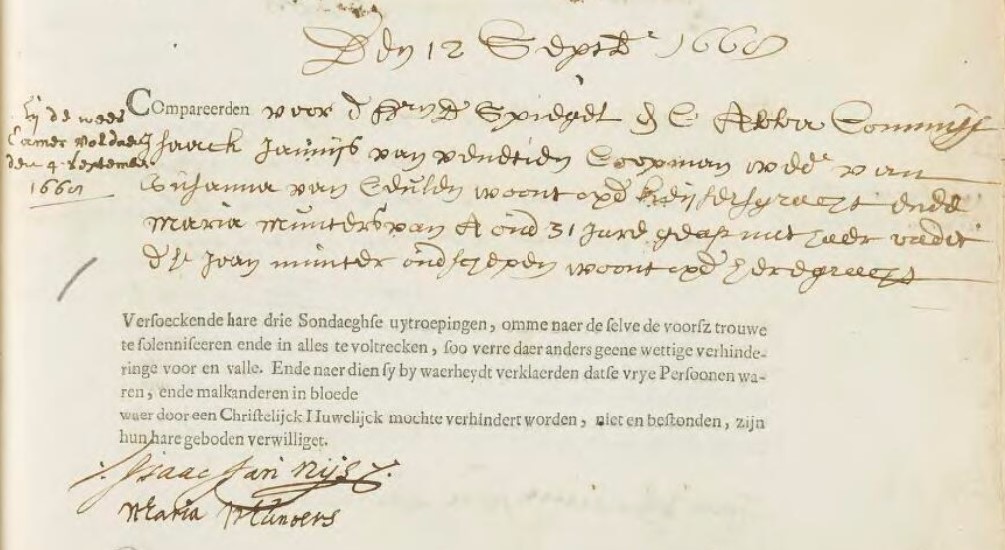 Den 12 Septbr 1668
COmpareerden voor d Hrn Spiegel en C Abba Commiss
Isaack Jannijs van venetien Coopman wedr van
Susanna van Ceulen woont opde keijsersgracht ende
Maria Munters van A oud 31 Jare geass met haer vader
d hr Joan munter oud schepen woont opde heregracht
bij de wees
Camer voldaen
den 4 September
1668
Versoeckende hare drie Sondaeghse uytroepingen, omme naer de selve de voorsz trouwe
te solenniseeren ende in alles te voltrecken, soo verre daer anders geene wettige verhinde-
ringe voor en valle. Ende naer dien sy by waerheydt verklaerden datse vrye Persoonen wa-
ren, ende malkanderen in bloede
waer door een Christelijck Huwelijck mochte verhindert worden, niet en bestonden, zijn
hun hare geboden verwilliget.
Isaac Jan Nijs
Maria Munters